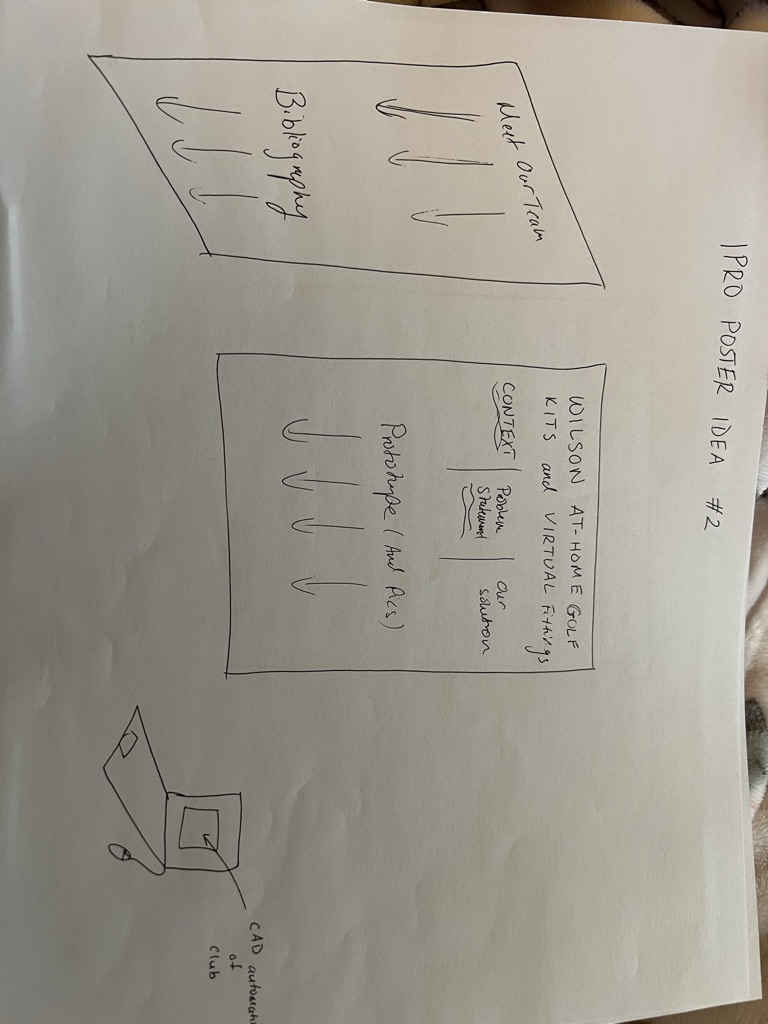 IPRO POSTER IDEA #2
Meet Our Team
Bibliography
WILSON AT-HOME GOLF
KITS and VIRTUAL Fittings
CONTEXT
Problem
Statement
Our
solution
Prototype (And Pics)
CAD automati
of
club